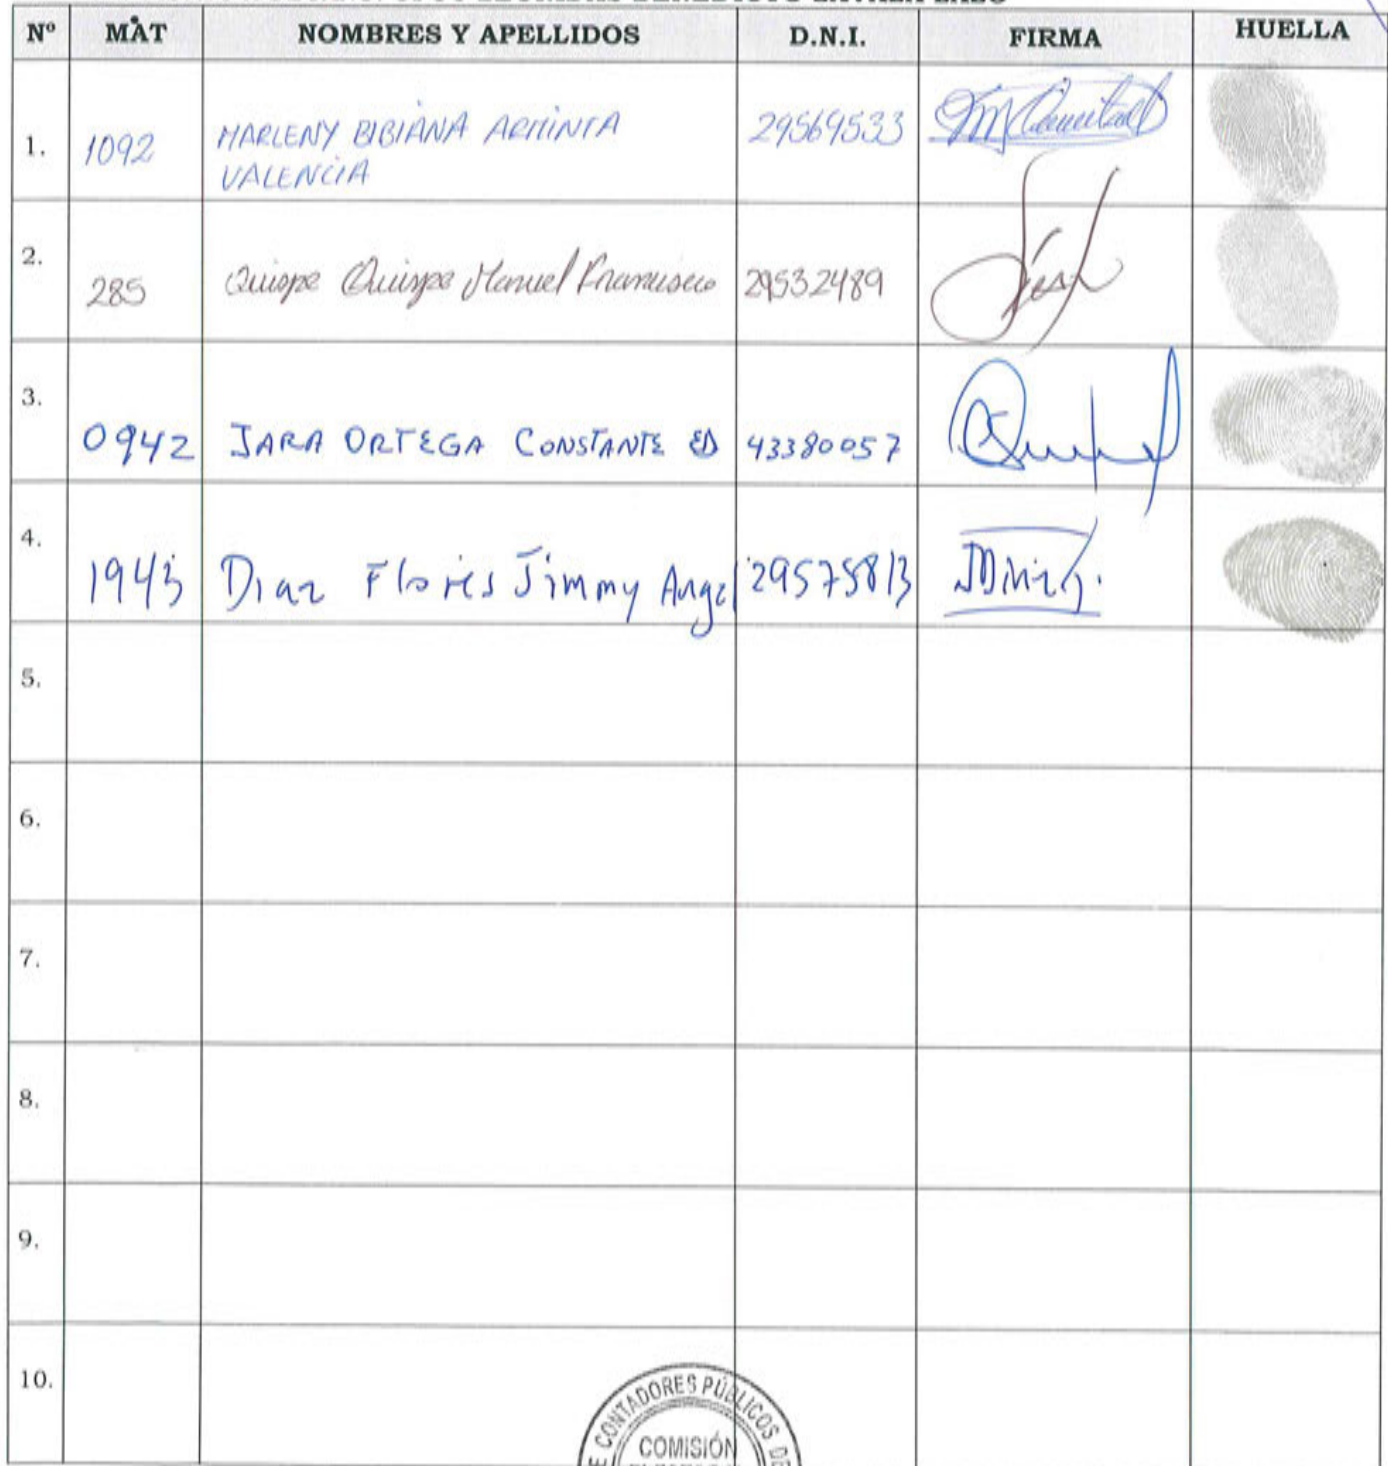 Nº MAT NOMBRES Y APELLIDOS D.N.I. FIRMA HUELLA
1. 1092 MARLENY BIBIANA ARMINTA 29569533
VALENCIA
2. 285 Quispe Quispe Manuel Francisco 29532489
3. 0942 JARA ORTEGA CONSTANTE ED 43380057
4. 1945 Diaz Flores Jimmy Angel 29575813
5.
6.
7.
8.
9.
10.
CONTADORES PÚBLICOS DE
COMISIÓN